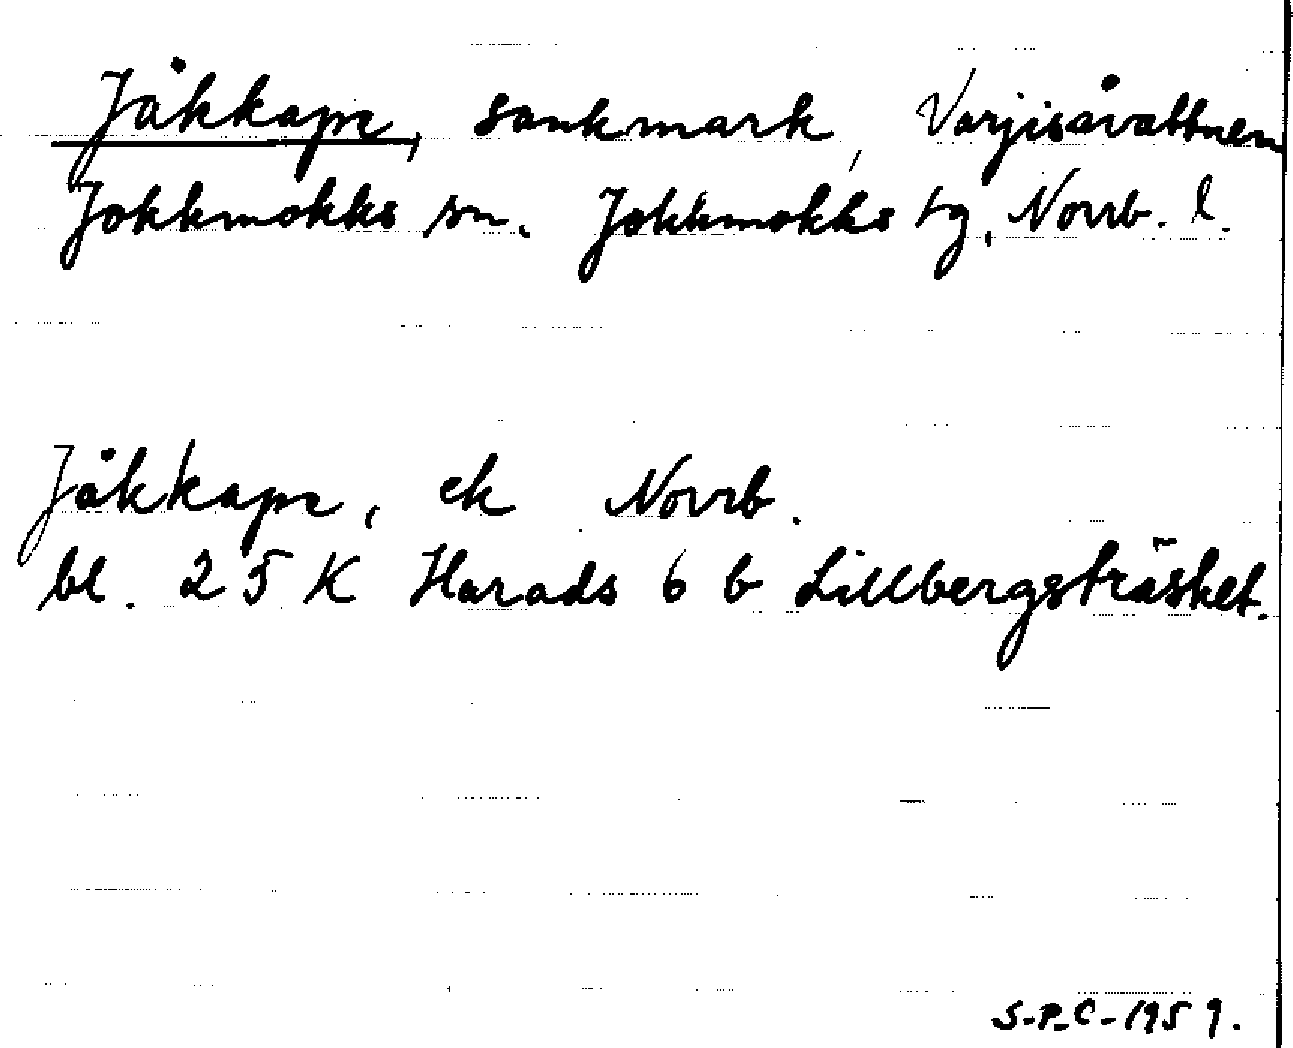 Jåkkape, sankmark, Varjisåvattnen
Jokkmokks sn. Jokkmokks tg, Norrb. l.
Jåkkape, ek Norrb.
bl. 25 K Harads 6 b Lillbergsträsket.
S-P-C-1959.